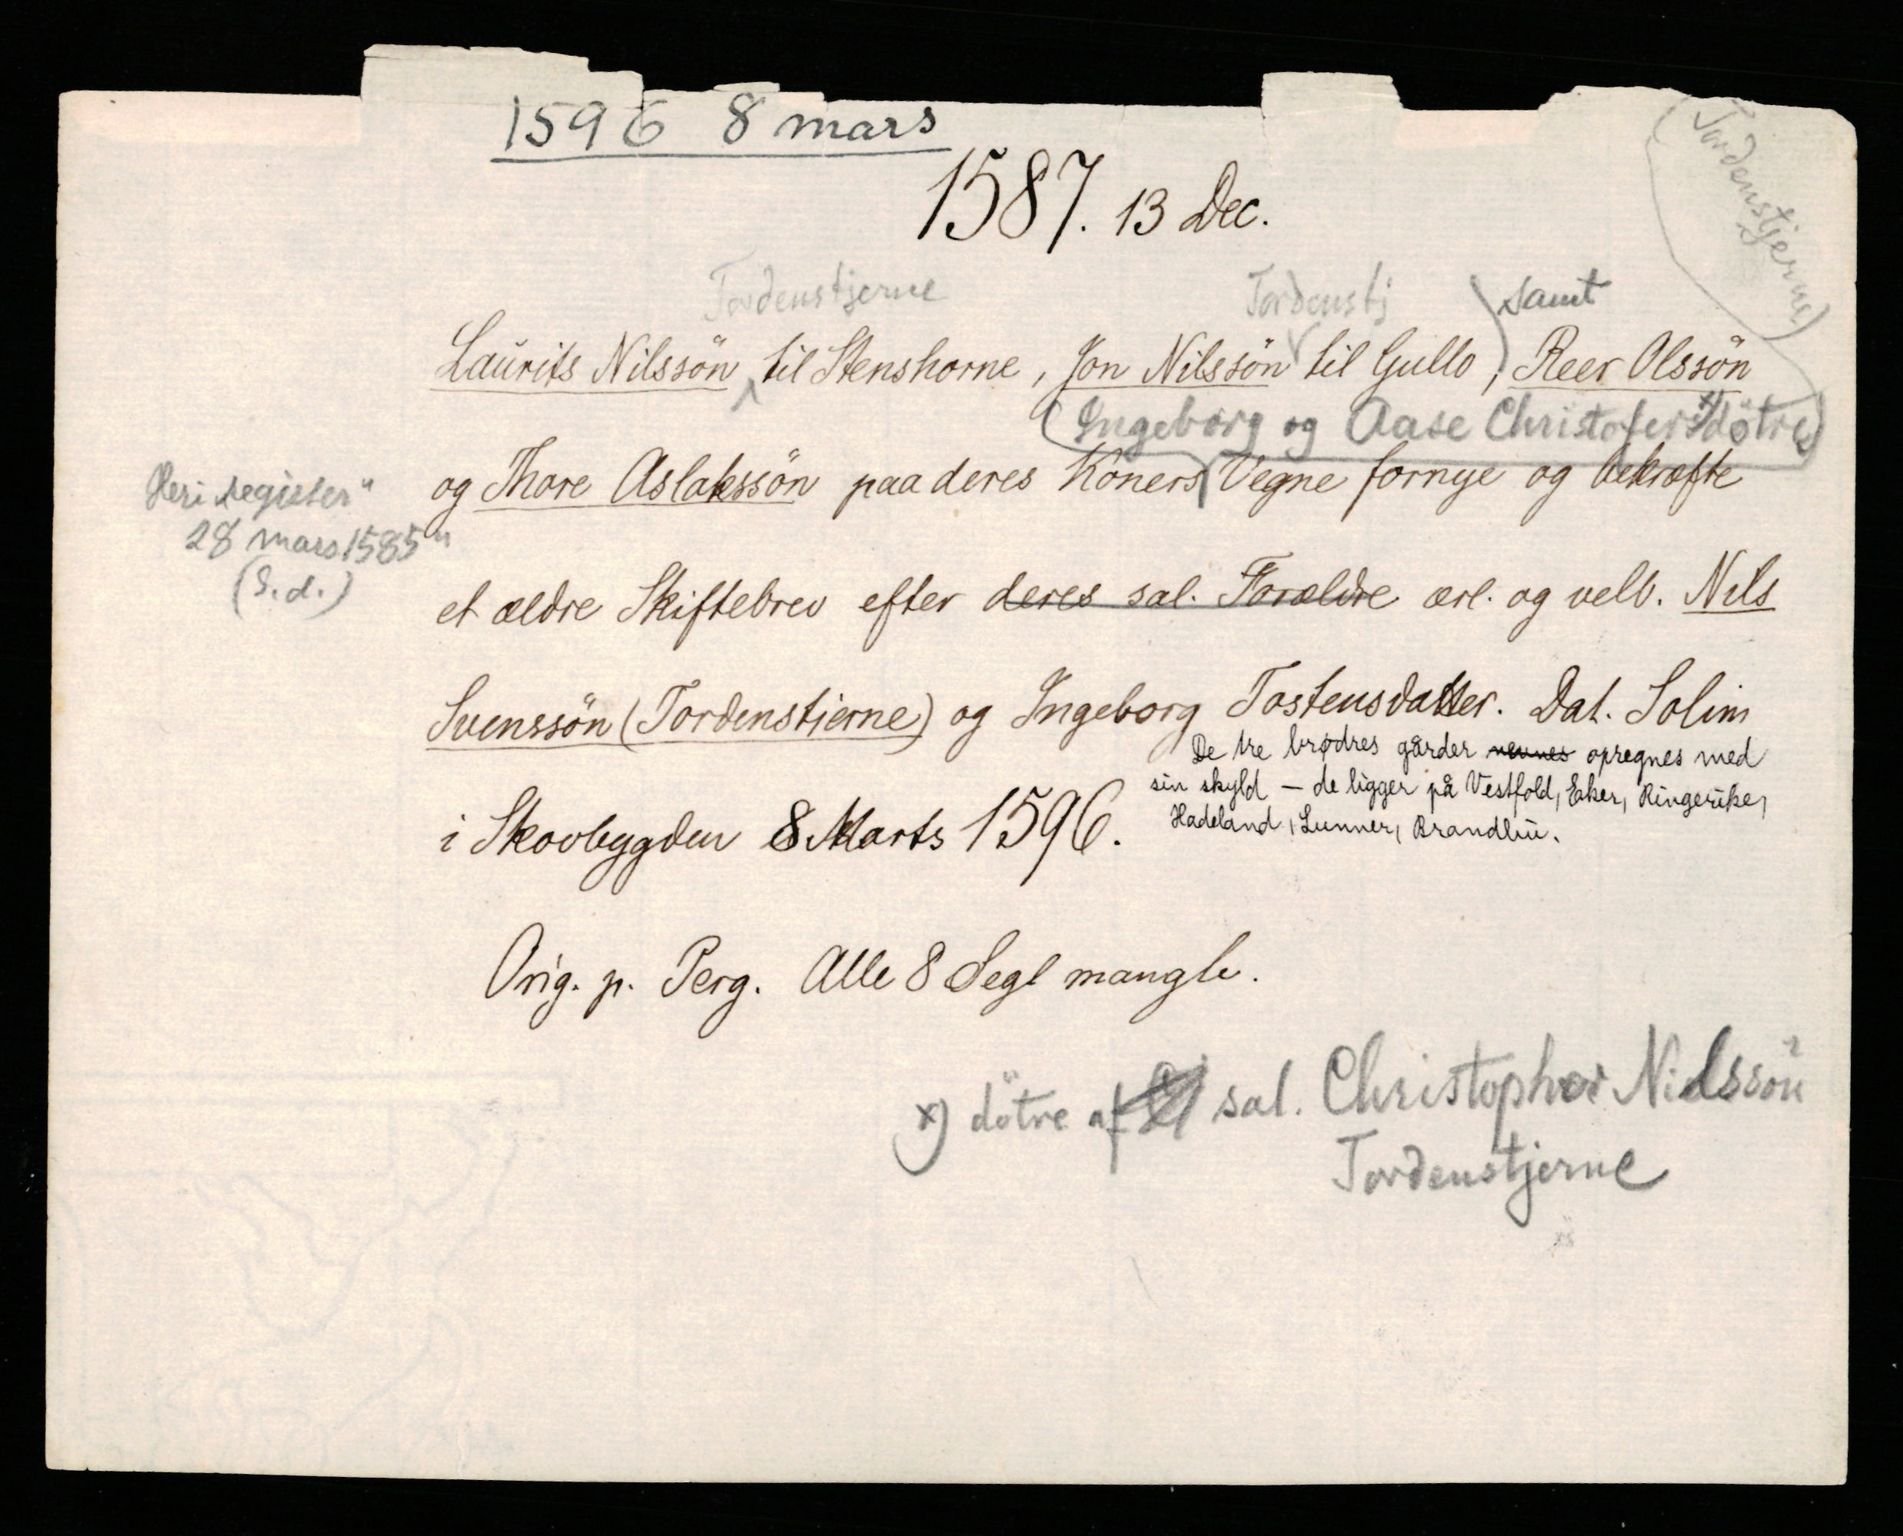 1596 8 mars
1587. 13 Dec.
(Tordenstjerne)
Tordenstjerne Tordenstj samt
Laurits Nilssön til Stenshorne, Jon Nilssön til Gullo, Reer Olssön
(Ingeborg og Aase Christofersdötre x)
og Thore Aslakssön paa deres Koners Vegne fornye og bekræfte
Heri „register"
28 mars 1585"
(S.d.)
et ældre Skiftebrev efter deres sal. Forældre ærl. og velb. Nils
Svenssön (Tordenstierne) og Ingeborg Tostensdatter. Dat. Solim
De tre brødres gårder nevnes opregnes med
sin skyld – de ligger på Vestfold, Eker, Ringerike,
Hadeland, Lunner, Brandbu.
i Skovbygden 8 Marts 1596.
Orig. p. Perg. Alle 8 Segl mangle.
x) dötre af sal. Christopher Nidssön
Tordenstjerne